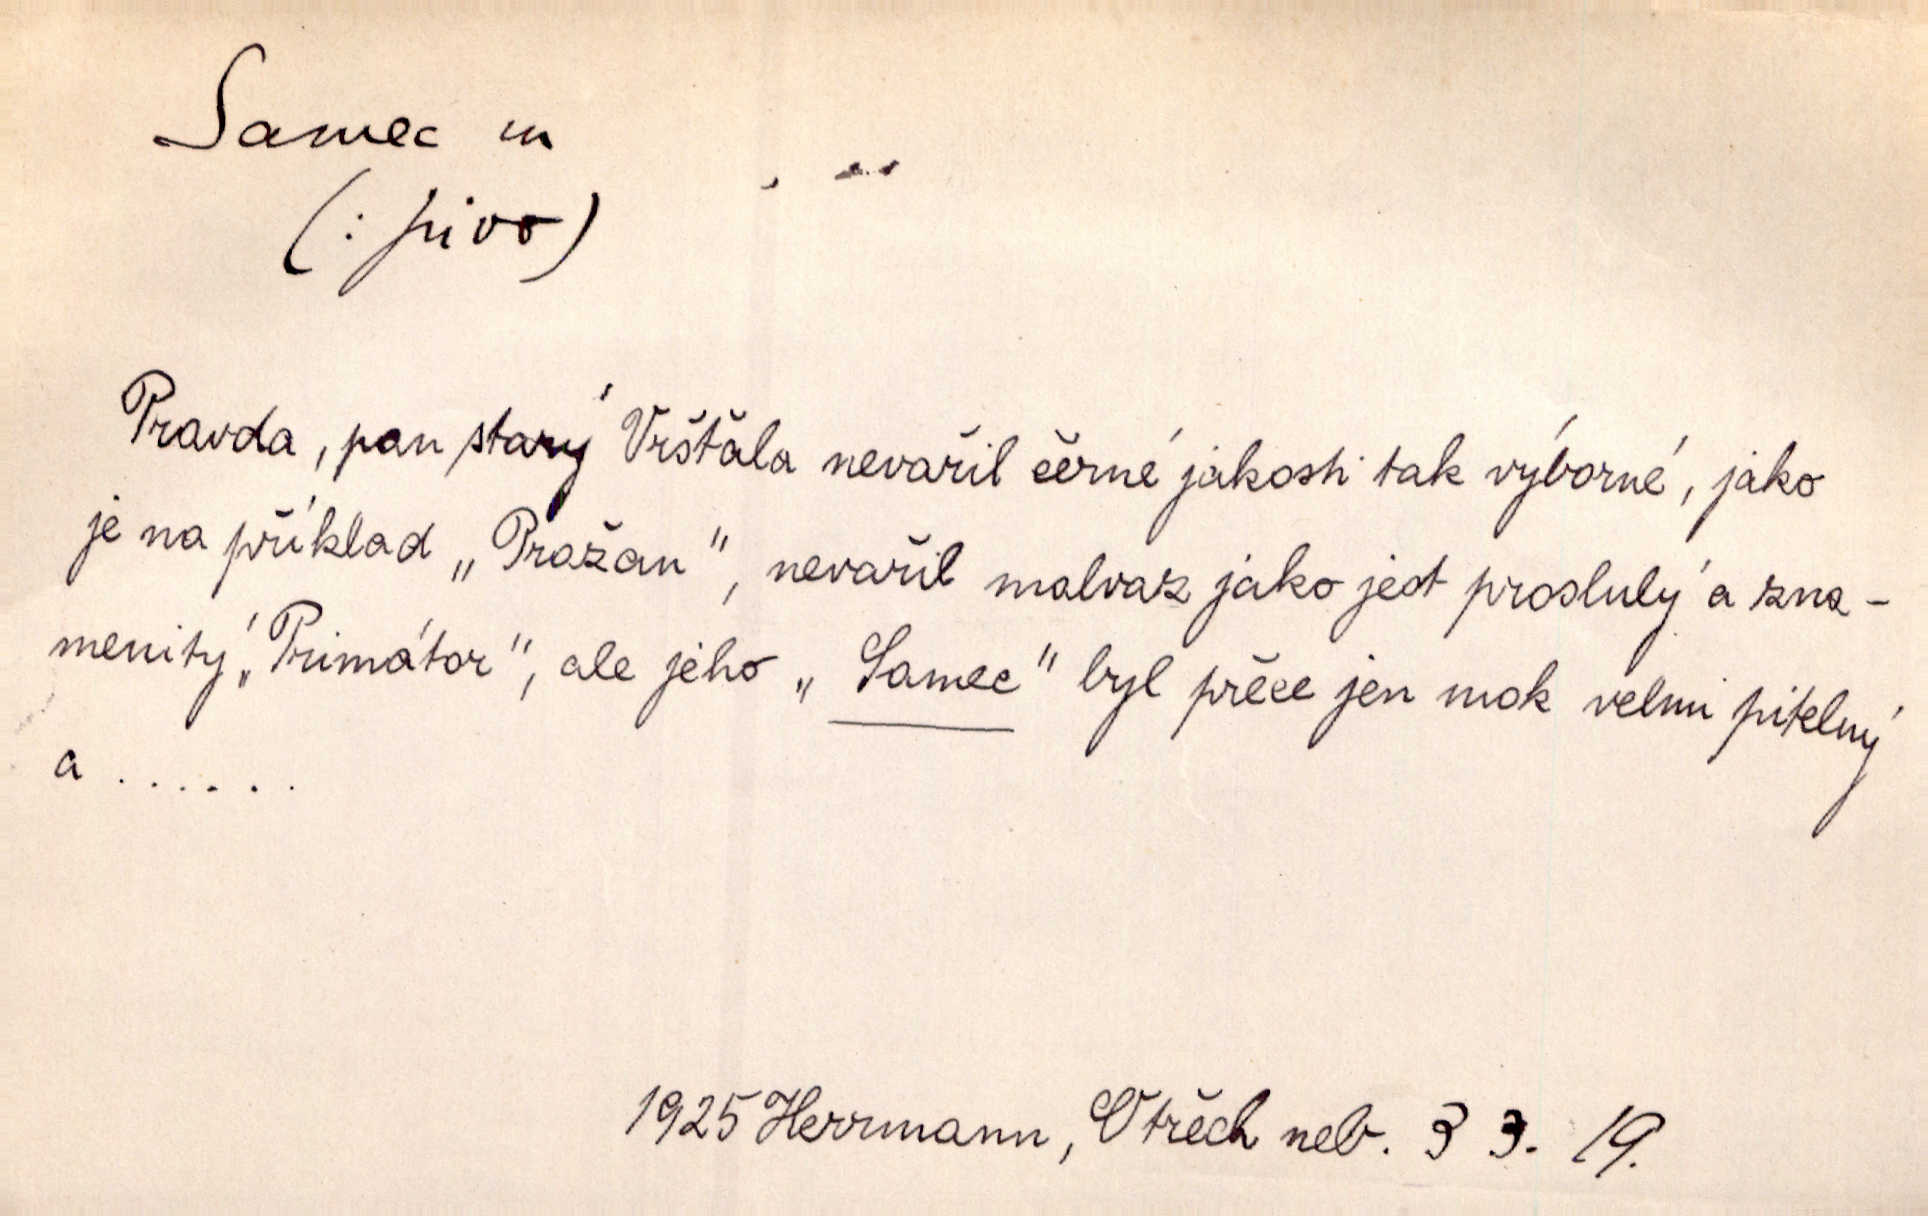 Samec m
(: pivo)
Pravda, pan starý Vršťála nevařil černé jakosti tak výborné, jako
je na příklad „Pražan", nevařil malvaz jako jest proslulý a zna-
menitý „Primátor", ale jeho „Samec" byl přece jen mok velmi pitelný
a ......
1925 Herrmann, V třech neb. 3 3. 19.